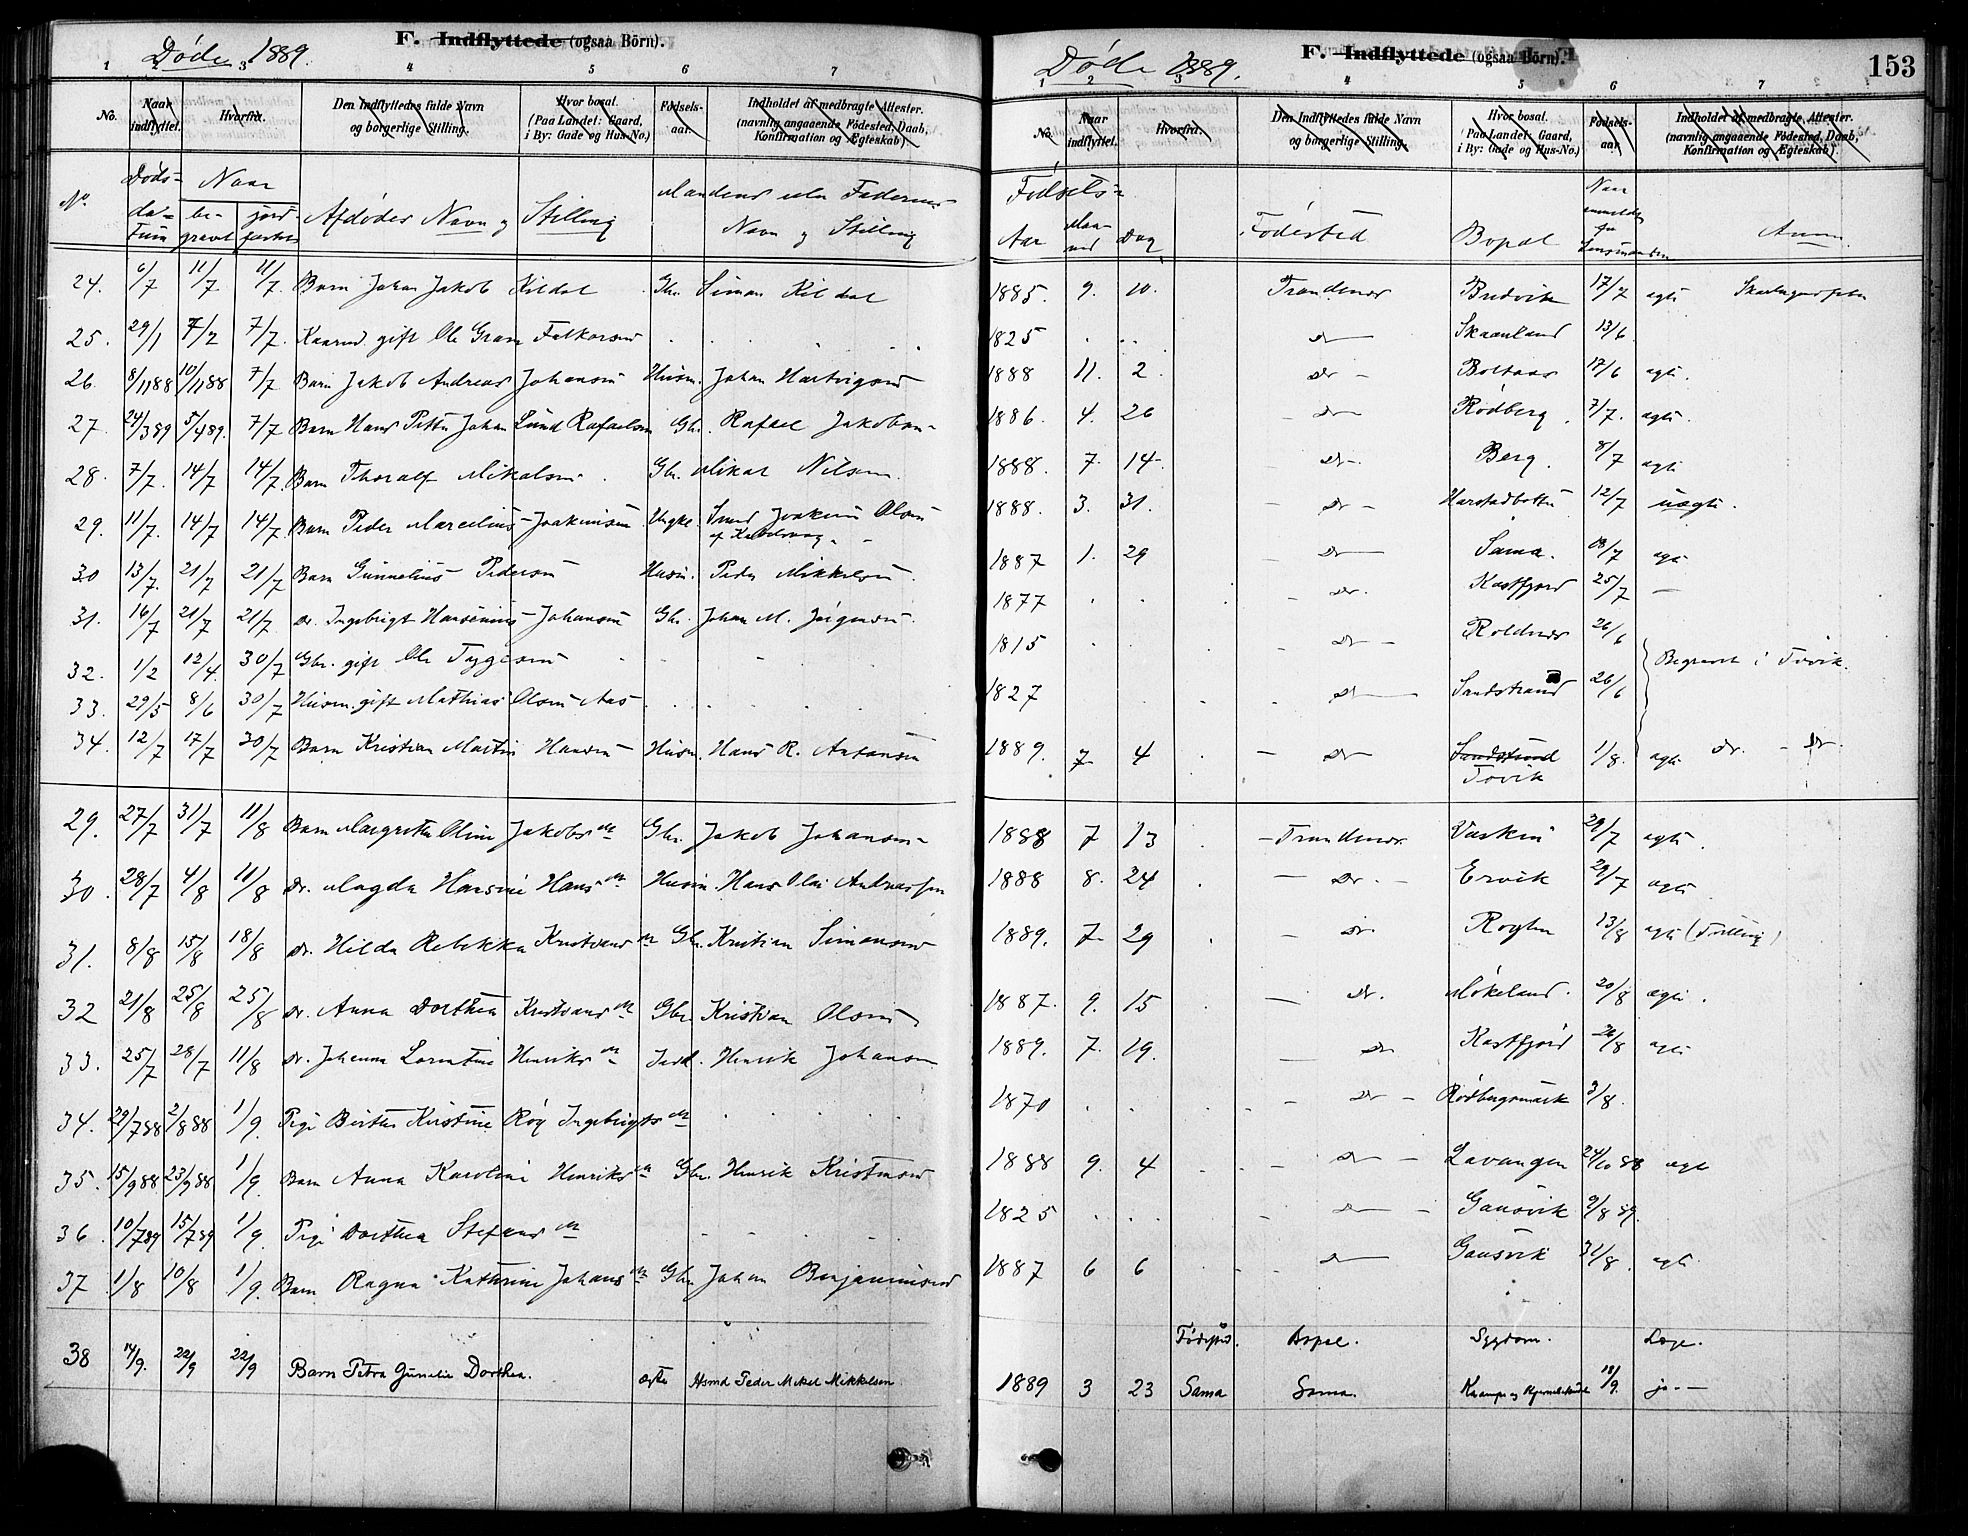 Døde 1889.
F. Indflyttede (ogsaa Börn).
1 2 3 4 5 6 7
No. Naar indflyttet. Hvorfra. Den Indflyttedes fulde Navn og borgerlige Stilling. Hvor bosat. (Paa Landet: Gaard, i By: Gade og Hus-No.) Fødsels-aar. Indholdet af medbragte Attester. (navnlig angaaende Födested, Daab, Konfirmation og Ægteskab)
No. Døds-datum Naar be-gravet jord-fæstet Afdødes Navn og Stilling Mandens eller Faderens Navn og Stilling
24. 6/7 11/7 11/7 Barn Johan Jakob Kildal Gbr. Simon Kildal
25. 29/1 7/2 7/7. gift Ole Gram Falkorsen
26. 8/11 88 10/11 88 7/7 Barn Jakob Andreas Johansen Husm. Johan Hartvigsen
27. 24/3 89 5/4 89. 7/7 Barn Hans Petter Johan Lund Rafaelsen Gbr. Rafael Jakobsen
28. 7/7. 14/7 14/7. Barn Thoralf Mikalsen Gbr. Mikal Nilsen
29. 11/7. 14/7 14/7. Barn Peder Marcelius Joakimsen Ungk. Joakim Olsen
af
30 13/7. 21/7 21/7 Barn Gunnelius Pedersen Husm. Peder Mikkelsen.
31. 16/7 21/7 21/7 do. Ingebrigt Hansenius Johansen Gbr. Johan M. Jørgensen.
32. 1/2 12/4 30/7 Gbr. gift Ole Tygesen
33. 29/5 8/6 30/7 Husm. gift Mathias Olsen Aas
34. 12/7 17/7 30/7 Barn Kristian Martin Hansen Husm. Hans R. Antonsen
29. 27/7 31/7 11/8 Barn Margrethe Oline Jakobsdtr Gbr. Jakob Johansen
30. 28/7 4/8 11/8 do. Magda Hansine Hansdtr Husm. Hans Olai Andreassen
31. 8/8 15/8 18/8 do. Hilda Rebekka Kristiansdtr Gbr. Kristian Simonsen
32 21/8 25/8 25/8 do. Anna Dorthea Kristiansdtr Gbr. Kristian Olsen
33. 25/7 28/7 11/8 do. Johanna Lorentine Henriksdtr Inds. Henrik Johansen
34. 29/7 88 2/8 88 1/9. Pige Berthe Kristine Røg Ingebrigtsdtr
35. 15/9 88 23/9 88 1/9. Barn Anna Karoline Henriksdtr Gbr. Henrik Kristensen
36. 10/7 89 15/7 89 1/9. Pige Dorthea Stefansdtr
37 1/8 10/8 1/9. Barn Ragna Kathrine Johansdtr Gbr. Johan Benjaminsen
38 14/9. 22/9 22/9 Barn Petra Gunelie Dorthea. ægte Hsmd Peder Mikal Mikkelsen.
Døde 1889.
F. Indflyttede (ogsaa Börn).
153
1 2 3 4 5 6 7
No. Naar indflyttet. Hvorfra. Den Indflyttedes fulde Navn og borgerlige Stilling. Hvor bosat. (Paa Landet: Gaard, i By: Gade og Hus-No.) Fødsels-aar. Indholdet af medbragte Attester. (navnlig angaaende Födested, Daab, Konfirmation og Ægteskab).
Fødsels- Aar Maa-ned Dag Fødested Bopæl Naar anmeldt for Lensmanden Anm.
1885. 9. 10. Trondenes Budvik 17/7 ægte
1825 do Skaanland 13/6
1888 11. 2. do Boltaas 17/6 ægte.
1886. 4. 26 do Rødberg. 7/7. ægte.
1888. 7. 14. do Berg. 8/7 ægte
1888. 3. 31. do Harstadbotten 12/7 uægte.
1887 1. 29 do Sama. ægte
1877 do. Kastfjord 25/7 —
1815 do Roldnes 26/6 Begravet i Tovik.
1827 do Sandstrand 26/6
1889. 7 4 do Sandstrand Tovik 1/8. ægte do. do.
1888 7 13 Trondenes Vaskin 29/7 ægte.
1888 8. 24 do. Ervik 29/7 ægte
1889. 7 29 do. Roglen 13/8 ægte (Tvilling)
1887. 9. 15 do. Møkeland. 20/8 ægte.
1889. 7. 19. do Kastfjord 26/8 ægte
1870 do Rødbergsmark 3/8.
1888 9. 4 do Lavangen 24/10 88 ægte
1825 do Gausvik 9/8 89.
1887 6 6 do Gausvik 31/8. ægte.
Fødested. Bopæl. Sygdom. Læge.
1889 3 23 Sama Sama. Krampe og 18/9. ja. —